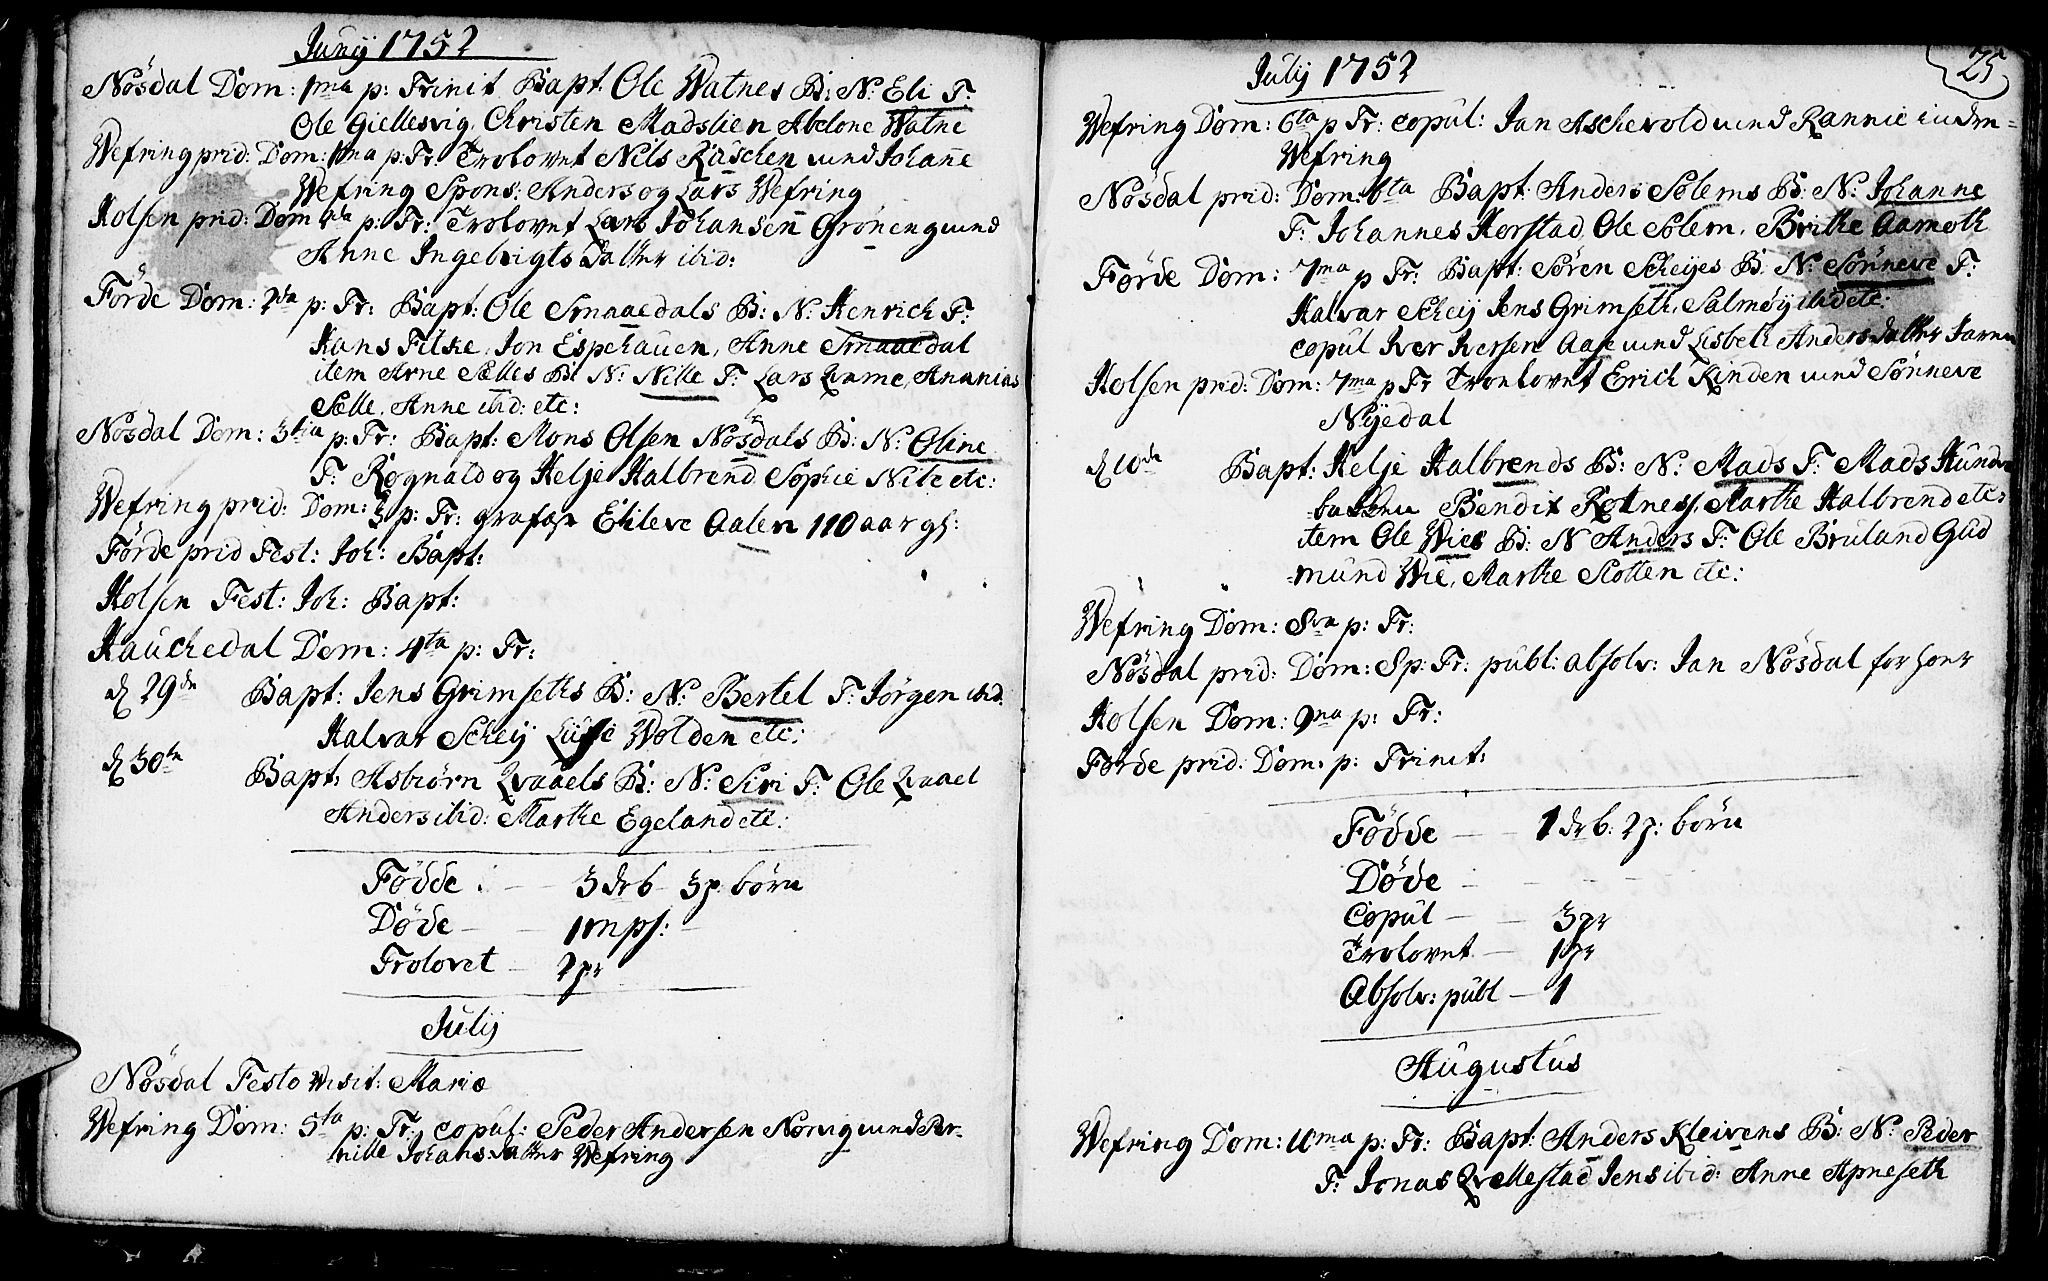 Junij 1752
Nösdal Dom: 1ma p: Trinit Bapt: Ole Watnes B: N: Eli F:
Ole Giellesvig, Christen Madslien Abelone Watne
Wefring prid: Dom: 1ma p: Fr: Trolovet Nils Råschen und Johane
Wefring Spons: Anders og Lars Wefring
Holsen prid: Dom 2da p: Fr: Trolovet Lars Johansen Gröneng und
Anne Ingebrigts Datter ibid:
Förde Dom: 2da p: Fr: Bapt: Ole Smaaedals B: N: Henrich F:
Hans Fitke, Jon Espehauen, Anne Smaaedal
item Arne Sælles B: N: Nille F: Lars Qvame, Ananias
Sælle, Anne ibid: etc:
Nösdal Dom: 3tia p: Fr: Bapt: Mons Olsen Nösdals B: N: Oline
F: Rognald og Helje Halbrend Sophie Nitz etc:
Wefring prid: Dom: 3 p: Fr: grafæst Ehleve Aalen 110 aar gl:
Förde prid Fest: Joh: Bapt:
Holsen Fest: Joh: Bapt:
Hauchedal Dom: 4ta p: Fr:
d 29de Bapt: Jens Grimseths B: N: Bertel F: Jörgen ibid:
Halvar Scheij Lusse Wolden etc:
d 30te Bapt: Asbiörn Qvaaels B: N: Siri F: Ole Qvaael
Anders ibid: Marthe Egeland etc:
Födde : - - 3 drb 3 p. börn
Döde - - 1 mpf: -
Trolovet - 2 pr
Julij
Nösdal Festo Visit: Mariæ
Wefring Dom: 5ta p: Fr: copul: Peder Andersen Nörvig und Per-
nille Johans Datter Wefring
25
Julij 1752
Wefring Dom: 6ta p Fr: copul: Jan Aschevold und Rannie indre-
Wefring
Nösdal prid: Dom: 6ta Bapt: Anders Solems B: N: Johanne
F: Johannes Horstad Ole Solem, Brithe Aamoth
Förde Dom: 7ma p Fr: Bapt: Sören Scheijes B: N: Sönneve F:
Halvar Scheij Jens Grimseth, Salmöij ibid etc:
copul Iver Iversen Aase und Lisbeth Anders Datter Farnen
Holsen prid: Dom: 7ma p Fr Tronlovet Erich Kinden und Sönneve
Nyedal
d 10de Bapt: Helje Halbrends B: N: Mads F: Mads Hunde
-backen Bendix Rotness, Marthe Halbrend etc:
item Ole Wies B: N Anders F: Ole Bruland Gud
-mund Wie, Marthe Slotten etc:
Wefring Dom: 8va p: Fr:
Nösdal prid: Dom: 8 p: Fr: publ: absolv: Jan Nösdal for hoer
Holsen Dom: 9na p: Fr:
Förde prid: Dom: p: Trinit:
Födde - - 1 drb: 2 p: börn
Döde - - - - -
Copul - - 3 pr
Trolovet - 1 pr
Absolv: publ - 1
Augustus
Wefring Dom: 11ma p: Fr: Bapt: Anders Kleivens B: N: Peder
F: Jonas Qvellestad Jens ibid: Anne Apneseth